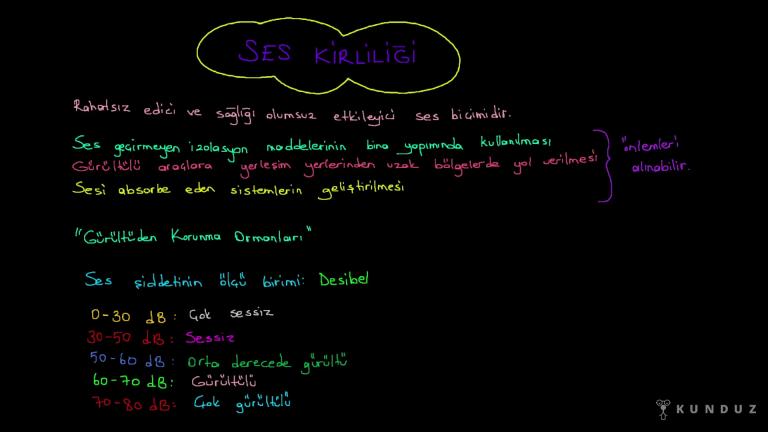 SES KİRLİLİĞİ
Rahatsız edici ve sağlığı olumsuz etkileyici ses biçimidir.
Ses geçirmeyen izolasyon maddelerinin bina yapımında kullanılması
Gürültülü araçlara yerleşim yerlerinden uzak bölgelerde yol verilmesi
Sesi absorbe eden sistemlerin geliştirilmesi
önlemleri
alınabilir.
"Gürültüden Korunma Ormanları"
Ses şiddetinin ölçü birimi: Desibel
0-30 dB: Çok sessiz
30-50 dB: Sessiz
50-60 dB: Orta derecede gürültü
60-70 dB: Gürültülü
70-80 dB: Çok gürültülü
KUNDUZ